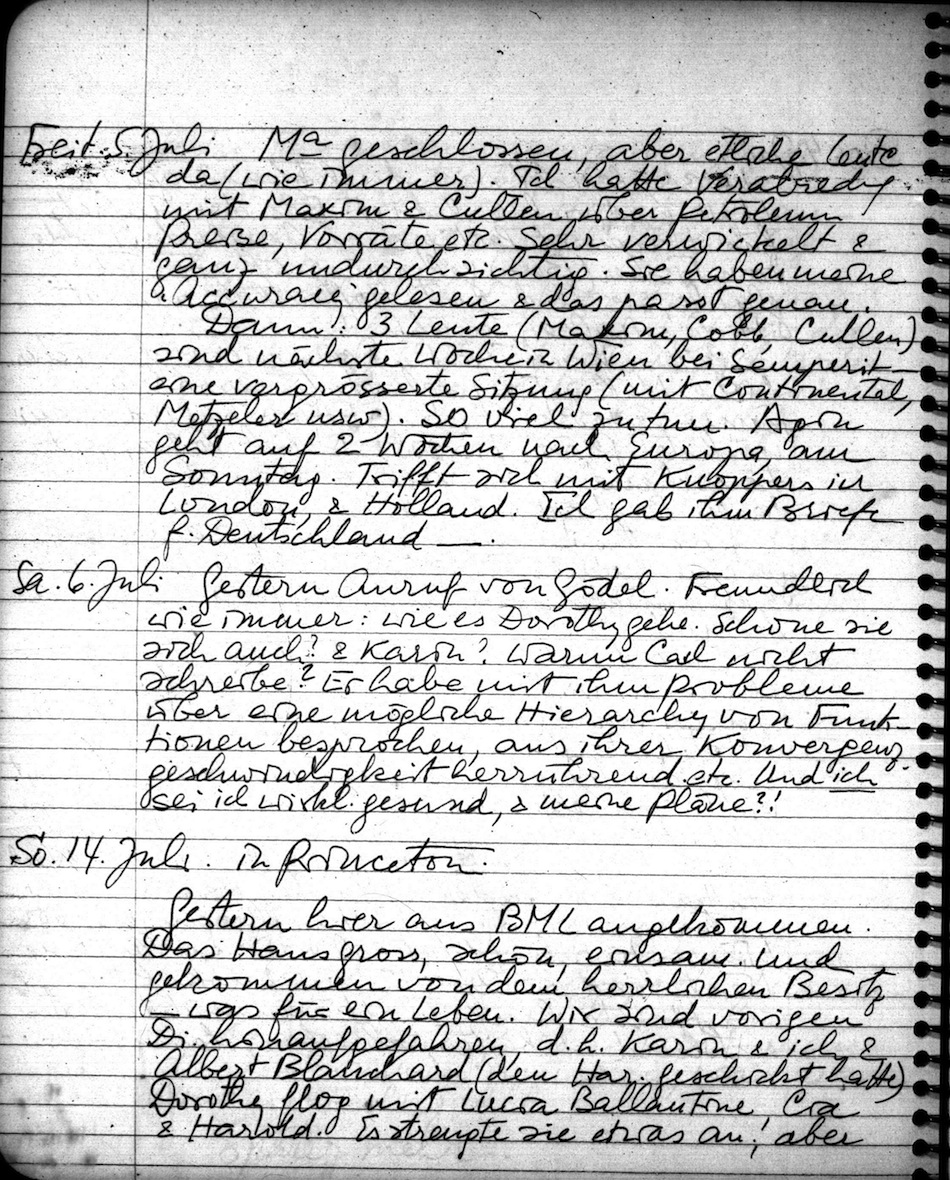 Freit. 5. Juli Ma geschlossen, aber etliche Leute
da (wie immer). Ich hatte Verabredg
mit Maxim & Cullen über Petroleum
Preise, Vorräte etc. Sehr verwickelt &
ganz undurchsichtig. Sie haben meine
"Accuracy" gelesen & das passt genau.
Dann: 3 Leute (Maxim, Cobb, Cullen)
sind nächste Woche in Wien bei Semperit –
eine vergrösserte Sitzung (mit Continental,
Metzeler usw). So viel zu tun. Agin
geht auf 2 Wochen nach Europa, am
Sonntag. Trifft sich mit Knoppers in
London, & Holland. Ich gab ihm Briefe
f. Deutschland —.
Sa. 6. Juli Gestern Anruf von Gödel. Freundlich
wie immer: wie es Dorothy gehe. Schone sie
sich auch? & Karin? Warum Carl nicht
schreibe? Er habe mit ihm Probleme
über eine mögliche Hierarchy von Funk-
tionen besprochen, aus ihrer Konvergenz-
geschwindigkeit herrührend etc. Und ich
sei ich wirkl. gesund, & meine Pläne?!
So. 14. Juli. in Princeton.
Gestern hier aus BML angekommen.
Das Haus gross, schön, einsam. Und
gekommen von dem herrlichen Besitz
– was für ein Leben. Wir sind vorigen
Di. hinaufgefahren, d.h. Karin & ich &
Albert Blanchard (den Har. geschickt hatte)
Dorothy flog mit Lucia Ballantine, Cia
& Harold. Es strengte sie etwas an, aber